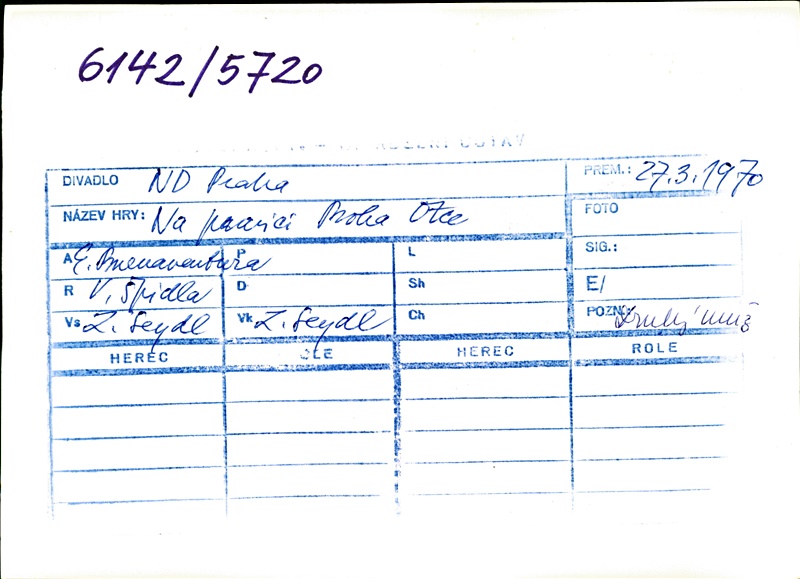 6142/5720
DIVADLO ND Praha PREM.: 27.3.1970
NÁZEV HRY: Na pravici Boha Otce FOTO
A E. Buenaventura P L SIG.:
R V. Špidla D Sh E/
Vs Z. Seydl Vk Z. Seydl Ch POZN: Druhý muž
HEREC ROLE HEREC ROLE